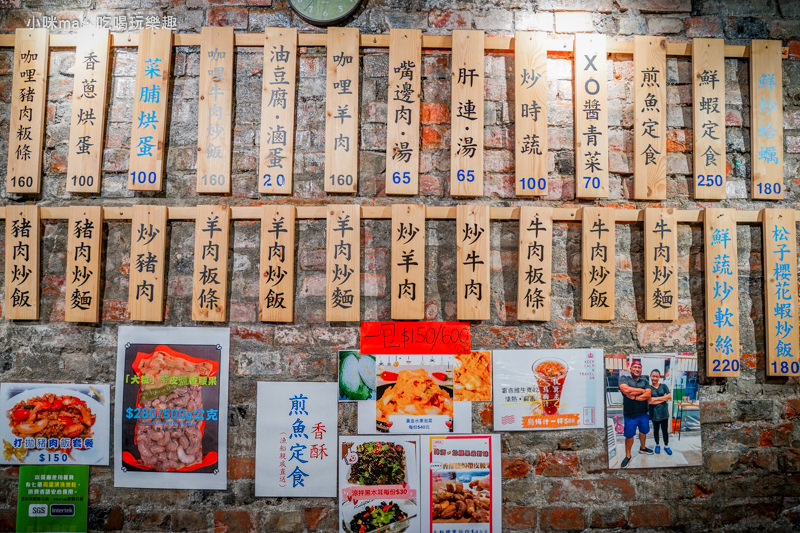 小咪ma 吃喝玩樂趣
咖哩豬肉板條
160
香蔥烘蛋
100
菜脯烘蛋
100
咖哩牛肉炒飯
160
油豆腐·滷蛋
20
咖哩羊肉
160
嘴邊肉·湯
65
肝連·湯
65
炒時蔬
100
XO醬青菜
70
煎魚定食
鮮蝦定食
250
鮮炒蛤蠣
180
豬肉炒飯
豬肉炒麵
炒豬肉
羊肉板條
羊肉炒飯
羊肉炒麵
炒羊肉
炒牛肉
牛肉板條
牛肉炒飯
牛肉炒麵
鮮蔬炒軟絲
220
松子櫻花蝦炒飯
180
打拋豬肉飯套餐
$150
SGS
Intertek
$280/600公克
香酥
煎魚定食
(漁船親底直送)
一包$150/600
黃金水果泡菜
每份$40元
烏梅汁一杯$80
涼拌黑木耳每份$30